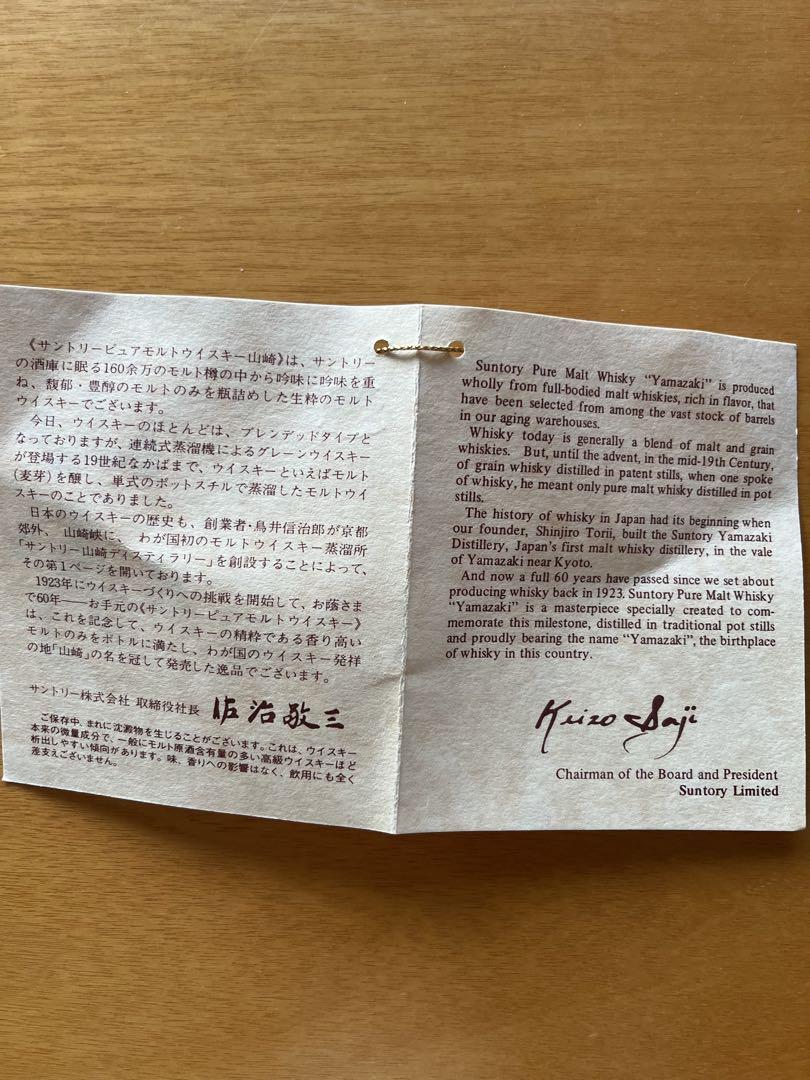 《サントリーピュアモルトウイスキー山崎》は、サントリー
の酒庫に眠る160余万のモルト樽の中から吟味に吟味を重
ね、馥郁・豊醇のモルトのみを瓶詰めした生粋のモルト
ウイスキーでございます。
今日、ウイスキーのほとんどは、ブレンデッドタイプと
なっておりますが、連続式蒸溜機によるグレーンウイスキー
が登場する19世紀なかばまで、ウイスキーといえばモルト
(麦芽)を醸し、単式のポットスチルで蒸溜したモルトウイ
スキーのことでありました。
日本のウイスキーの歴史も、創業者・鳥井信治郎が京都
郊外、山崎峡に、わが国初のモルトウイスキー蒸溜所
「サントリー山崎ディスティラリー」を創設することによって、
その第1ページを開いております。
1923年にウイスキーづくりへの挑戦を開始して、お蔭さま
で60年——お手元の《サントリーピュアモルトウイスキー》
は、これを記念して、ウイスキーの精粋である香り高い
モルトのみをボトルに満たし、わが国のウイスキー発祥
の地「山崎」の名を冠して発売した逸品でございます。
サントリー株式会社 取締役社長 佐治敬三
ご保存中、まれに沈澱物を生じることがございます。これは、ウイスキー
本来の微量成分で、一般にモルト原酒含有量の多い高級ウイスキーほど
析出しやすい傾向があります。味、香りへの影響はなく、飲用にも全く
差支えございません。
Suntory Pure Malt Whisky “Yamazaki” is produced
wholly from full-bodied malt whiskies, rich in flavor, that
have been selected from among the vast stock of barrels
in our aging warehouses.
Whisky today is generally a blend of malt and grain
whiskies. But, until the advent, in the mid-19th Century,
of grain whisky distilled in patent stills, when one spoke
of whisky, he meant only pure malt whisky distilled in pot
stills.
The history of whisky in Japan had its beginning when
our founder, Shinjiro Torii, built the Suntory Yamazaki
Distillery, Japan’s first malt whisky distillery, in the vale
of Yamazaki near Kyoto.
And now a full 60 years have passed since we set about
producing whisky back in 1923. Suntory Pure Malt Whisky
“Yamazaki” is a masterpiece specially created to com-
memorate this milestone, distilled in traditional pot stills
and proudly bearing the name “Yamazaki”, the birthplace
of whisky in this country.
Keizo Saji
Chairman of the Board and President
Suntory Limited